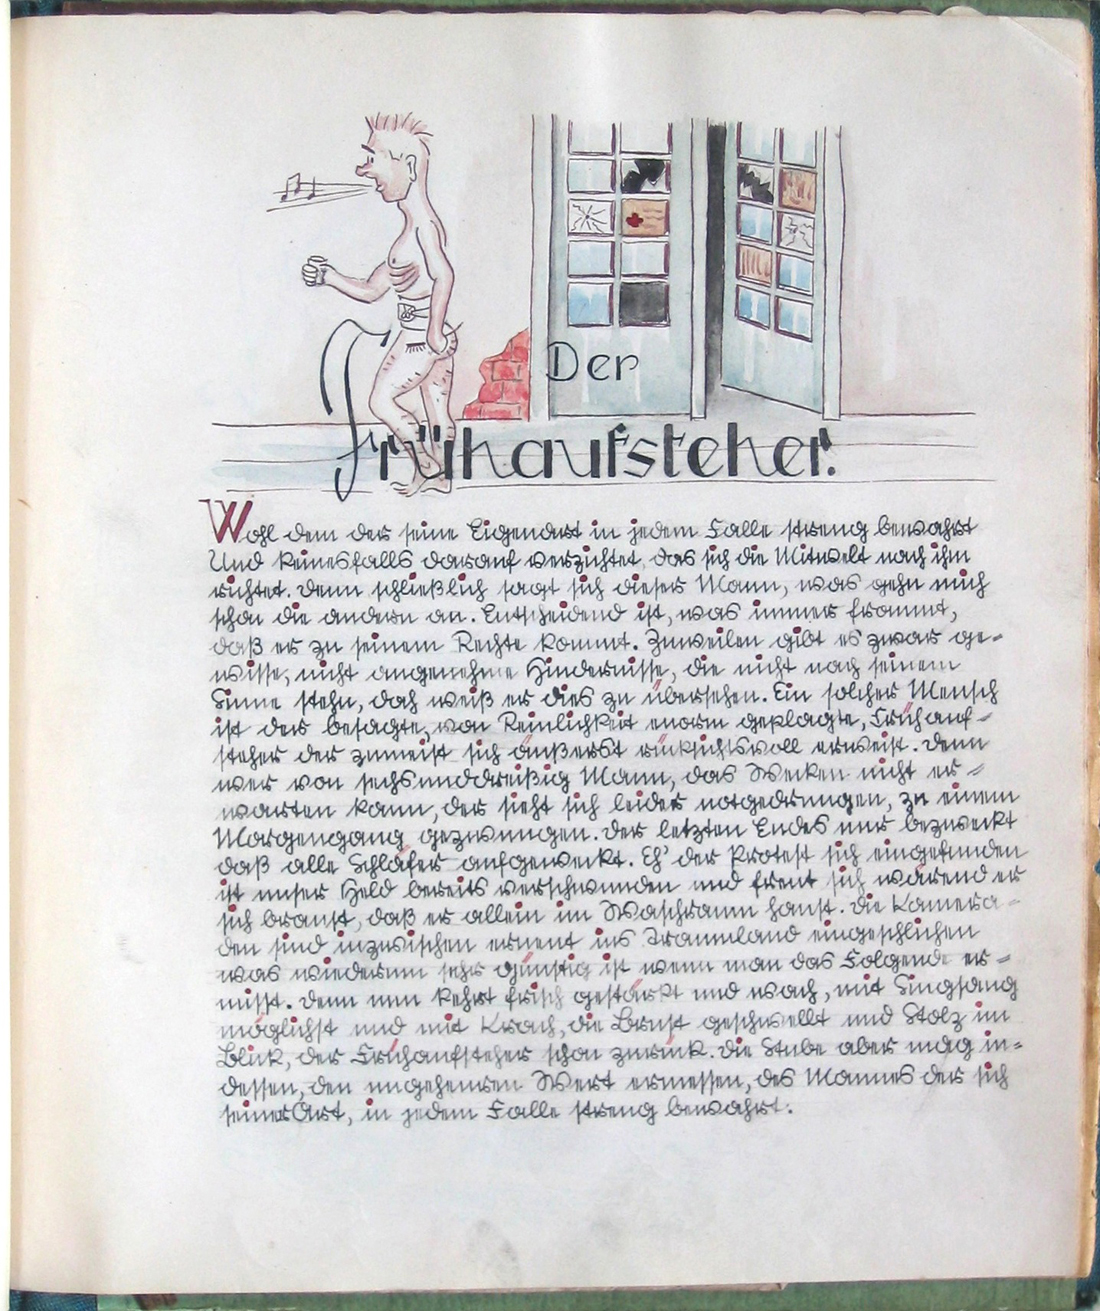 Der
Frühaufsteher.
Wohl dem der seine Eigenart in jedem Falle streng bewahrt
Und keinesfalls darauf verzichtet, das sich die Mitwelt nach ihm
richtet. Denn schließlich sagt sich dieser Mann, was gehn mich
schon die andern an. Entscheidend ist, was immer frommt,
daß er zu seinem Rechte kommt. Zuweilen gibt es zwar ge-
wisse, nicht angenehme Hindernisse, die nicht nach seinem
Sinne stehn, doch weiß er dies zu übersehen. Ein solcher Mensch
ist der besagte, von Reinlichkeit enorm geplagte, Frühauf-
steher der zumeist sich äußerst rücksichtsvoll erweist. Denn
wer von sechsunddreißig Mann, das Wecken nicht er-
warten kann, der sieht sich leider notgedrungen, zu einem
Morgengang gezwungen. Der letzten Endes nur bezweckt
daß alle Schläfer aufgeweckt. Eh' der Protest sich eingefunden
ist unser Held bereits verschwunden und freut sich wärend er
sich braust, daß er allein im Waschraum haust. Die Kamera-
den sind inzwischen erneut ins Traumland eingeschlichen
was wiederum sehr günstig ist wenn man das Folgende er-
mißt. Denn nun kehrt frisch gestärkt und wach, mit Singsang
möglichst und mit Krach, die Brust geschwellt und Stolz im
Blick, der Frühaufsteher schon zurück. Die Stube aber mag in-
dessen, den ungeheuren Wert ermessen, des Mannes der sich
seiner Art, in jedem Falle streng bewahrt.